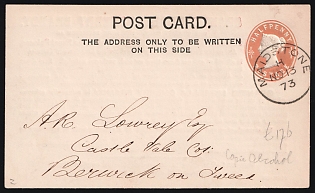 POST CARD.
HALFPENNY
THE ADDRESS ONLY TO BE WRITTEN
ON THIS SIDE
MAIDSTONE
NO 13
73
A.R. Lowrey Esq
Castle Vale Cot.
Berwick on Tweed.